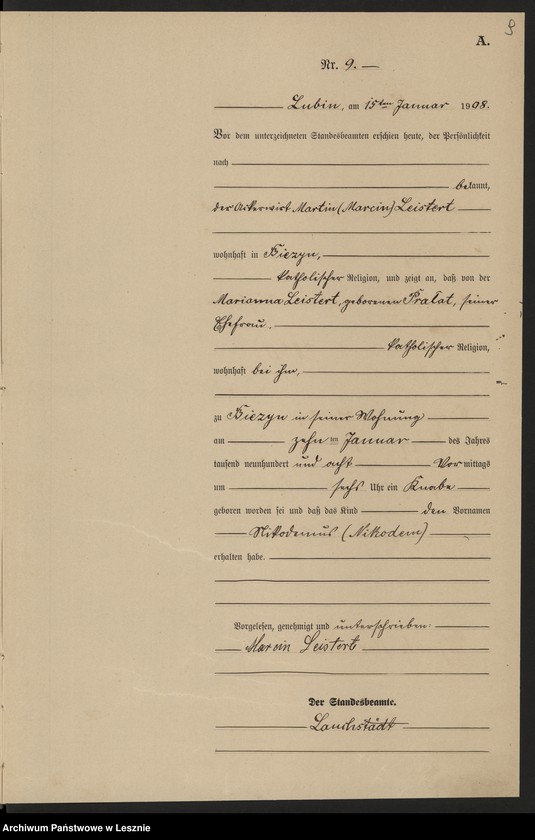 9
A.
Nr. 9.
Lubin, am 15ten Januar 1908.
Vor dem unterzeichneten Standesbeamten erschien heute, der Persönlichkeit
nach
bekannt,
der Ackerwirt Martin (Marcin) Leistert
wohnhaft in Bieżyn,
katholischer Religion, und zeigt an, daß von der
Marianna Leistert, geborenen Prałat, seiner
Ehefrau,
katholischer Religion,
wohnhaft bei ihm,
zu Bieżyn in seiner Wohnung
am zehnten Januar des Jahres
tausend neunhundert und acht Vormittags
um sechs Uhr ein Knabe
geboren worden sei und daß das Kind den Vornamen
Nikodemus (Nikodem)
erhalten habe.
Vorgelesen, genehmigt und unterschrieben.
Marcin Leistert
Der Standesbeamte.
Lauchstädt
Archiwum Państwowe w Lesznie